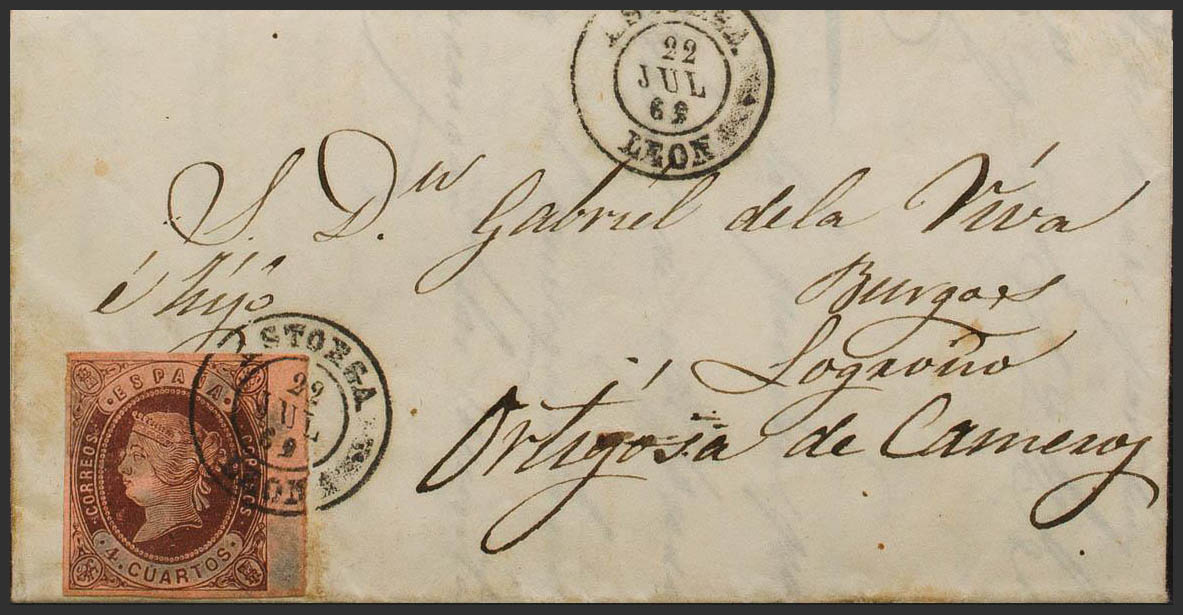 ASTORGA
22
JUL
62
LEON
S. Dn. Gabriel de la Viva
é hijo
Burgos
Logroño
Ortigosa de Cameros
ASTORGA
22
JUL
LEON
ESPAÑA
CORREOS
4. CUARTOS